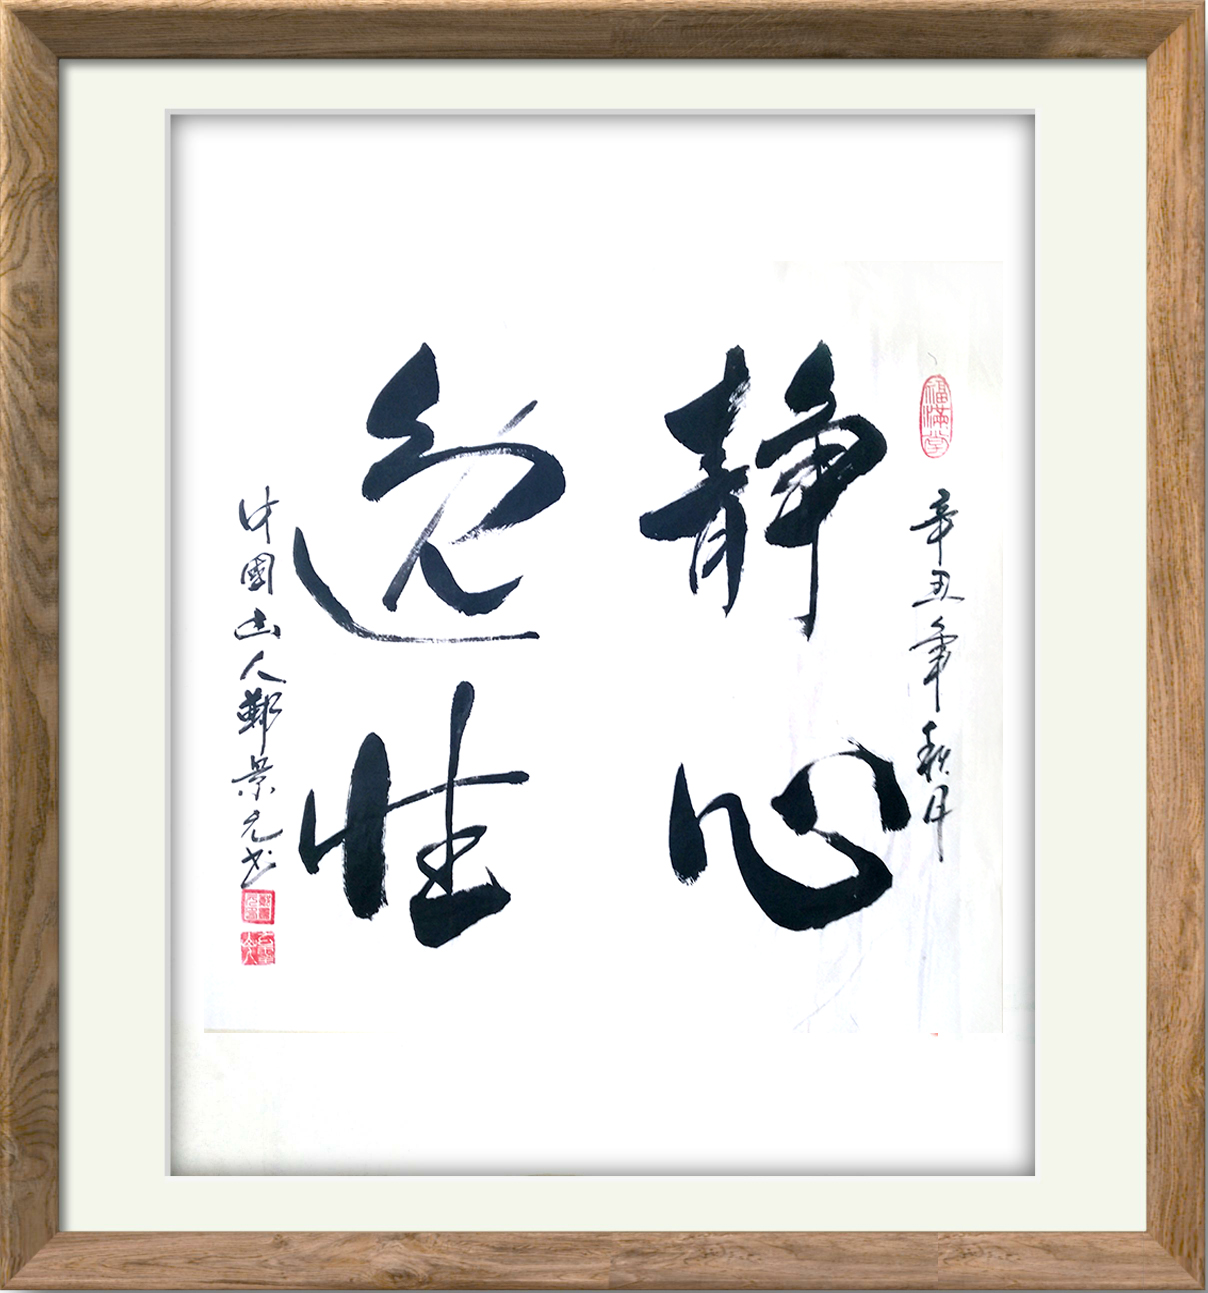 福滿堂
辛丑年秋月
静心
逸性
中國山人鄭景元书